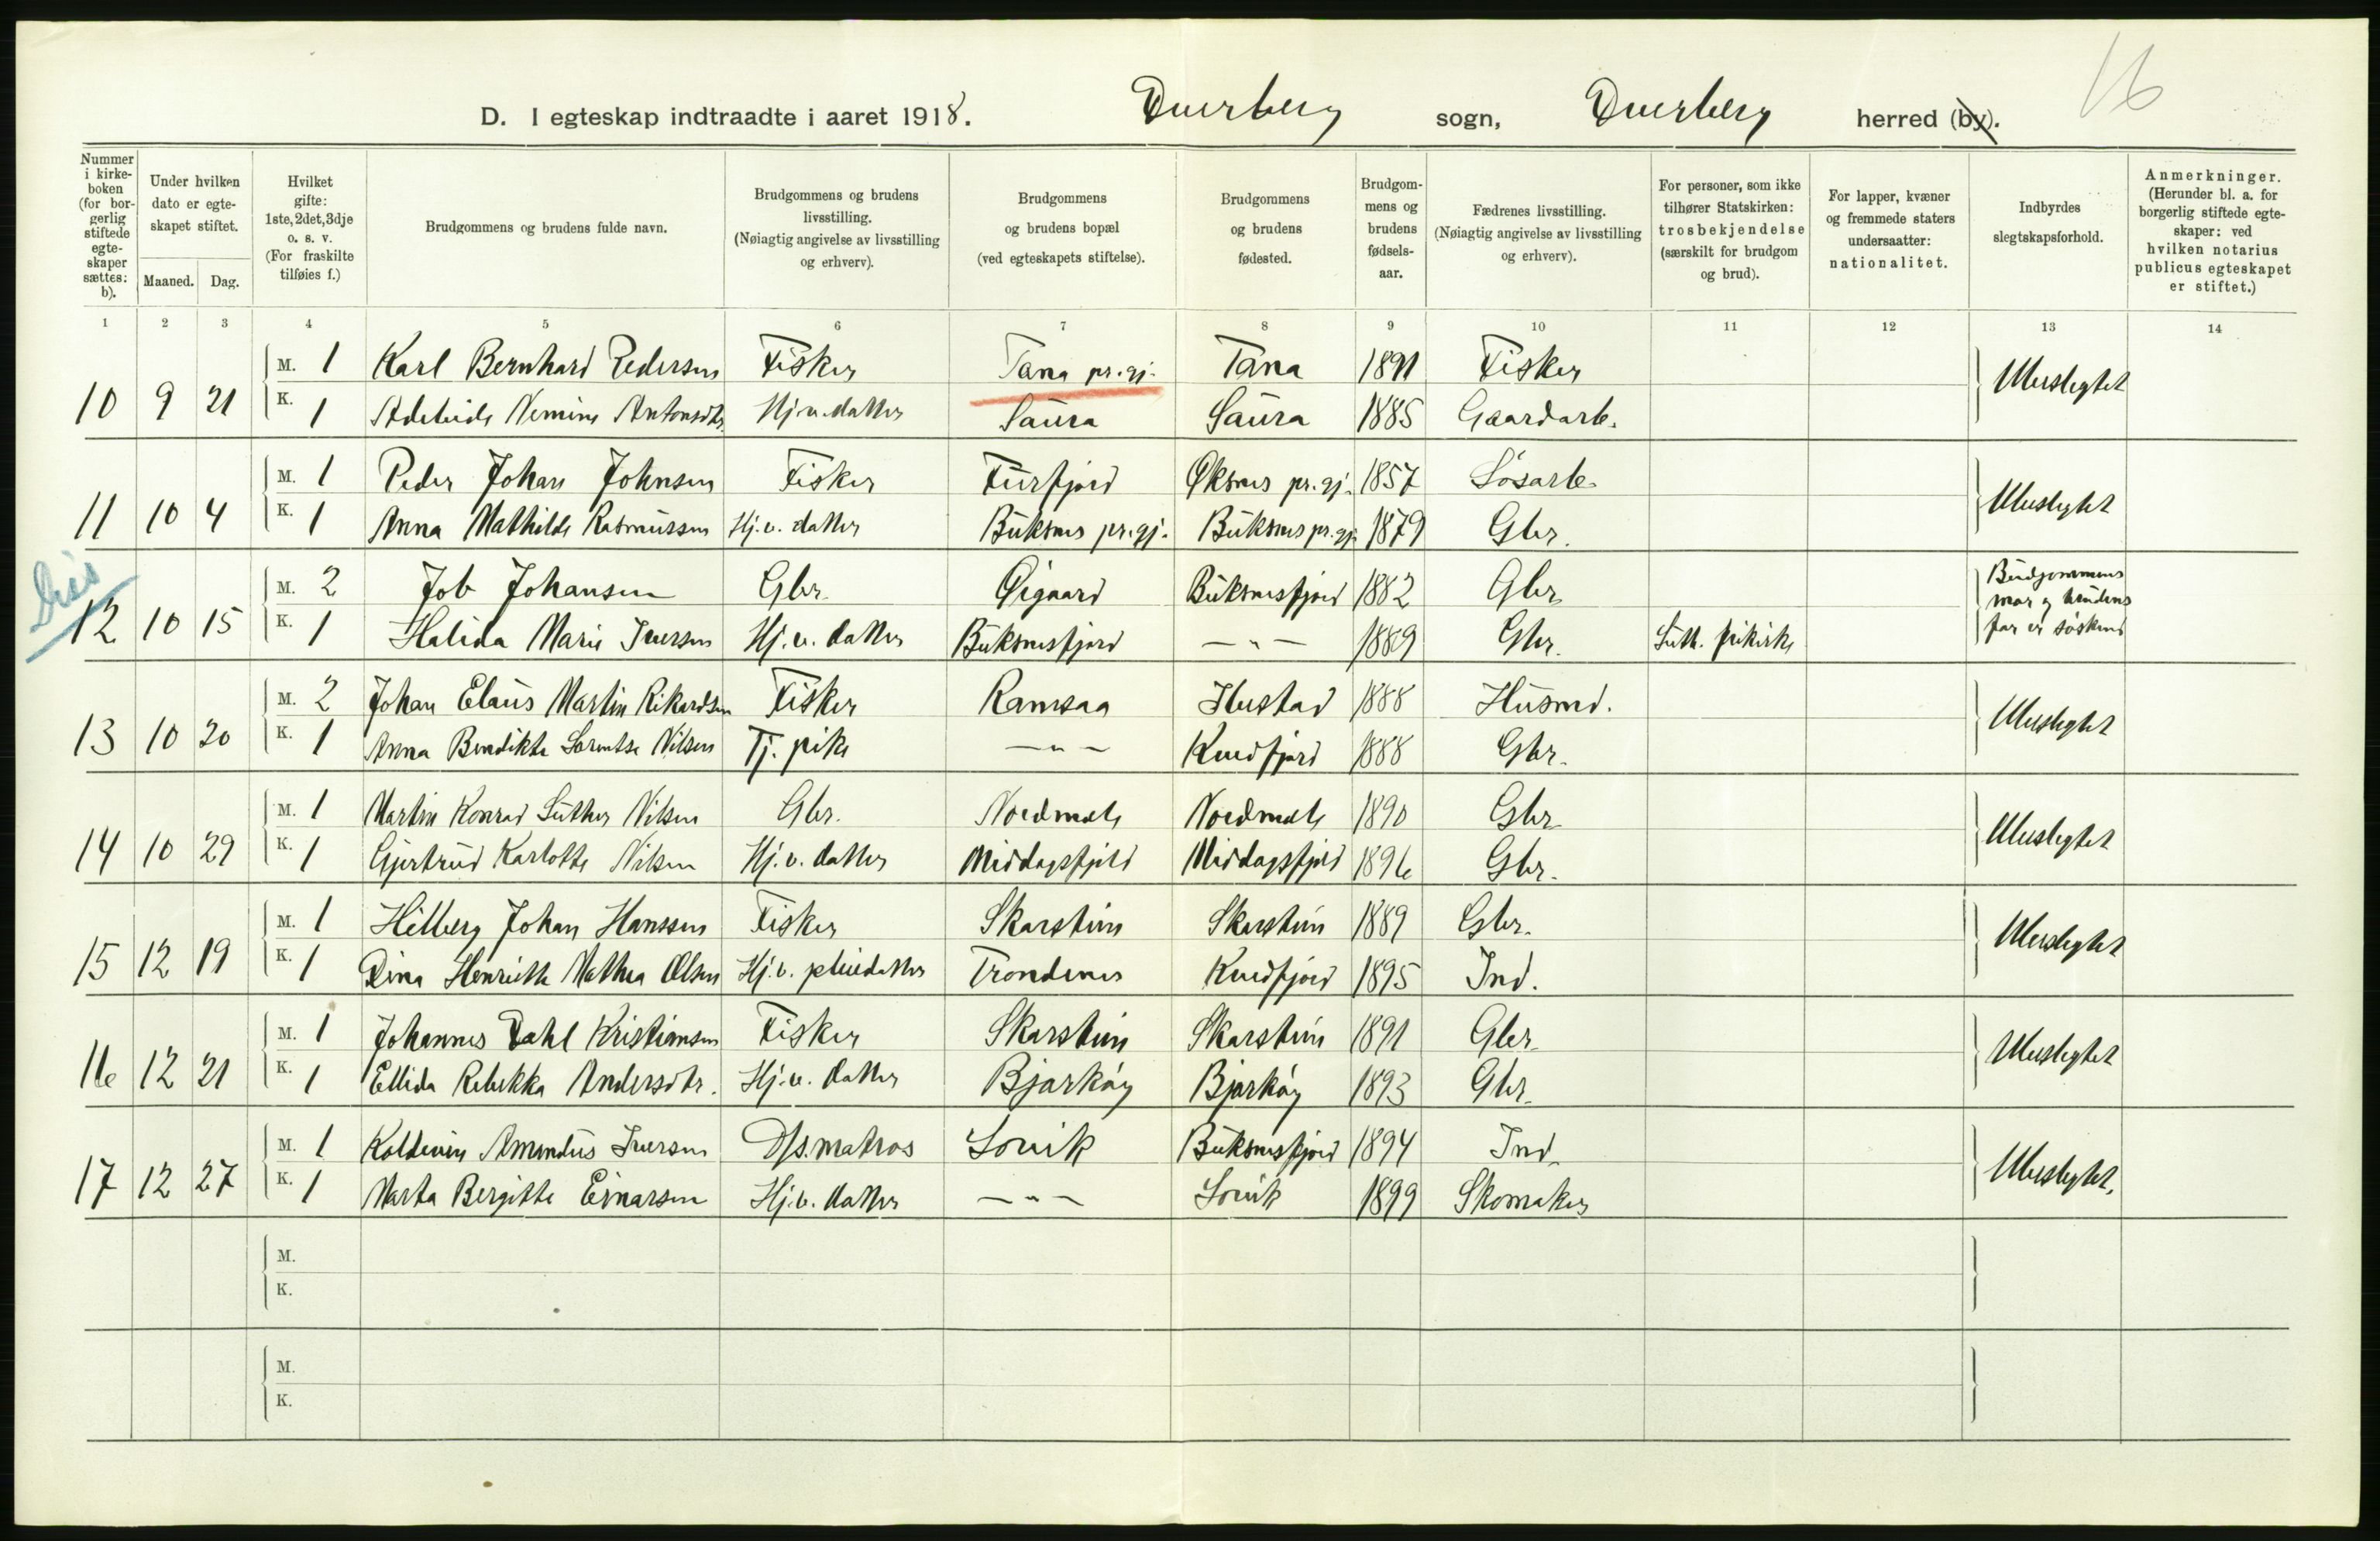 16
D. I egteskap indtraadte i aaret 1918. Dverberg sogn, Dverberg herred (by).
Nummer i kirke-boken (for bor-gerlig stiftede egte-skaper sættes: b).
Under hvilken dato er egte-skapet stiftet.
Maaned. Dag.
Hvilket gifte: 1ste, 2det, 3dje o. s. v. (For fraskilte tilføies f.)
Brudgommens og brudens fulde navn.
Brudgommens og brudens livsstilling. (Nøiagtig angivelse av livsstilling og erhverv).
Brudgommens og brudens bopæl (ved egteskapets stiftelse).
Brudgommens og brudens fødested.
Brudgom-mens og brudens fødsels-aar.
Fædrenes livsstilling. (Nøiagtig angivelse av livsstilling og erhverv).
For personer, som ikke tilhører Statskirken: trosbekjendelse (særskilt for brudgom og brud).
For lapper, kvæner og fremmede staters undersaatter: nationalitet.
Indbyrdes slegtskapsforhold.
Anmerkninger. (Herunder bl. a. for borgerlig stiftede egte-skaper: ved hvilken notarius publicus egteskapet er stiftet.)
1 2 3 4 5 6 7 8 9 10 11 12 13 14
M. 1 Karl Bernhard Pedersen Fisker Tana pr.gj. Tana 1891 Fisker Ubeslegtet
10 9 21 K. 1 Nemine Antonsdtr. Hj.v. datter Saura Saura 1885 Gaardarb.
M. 1 Peder Johan Johnsen Fisker Fiirfjord Øksnes pr.gj. 1857 Løsarb. Ubeslegtet
11 10 4 K. 1 Anna Mathilde Rasmussen Hj.v. datter Buksnes pr.gj. Buksnes pr.gj. 1879 Gbr.
M. 2 Job Johansen Gbr. Øigaard Buksnesfjord 1882 Gbr. Brudgommens mor og brudens far er søskend
12 10 15 K. 1 Halida Marie Iversen Hj.v. datter Buksnesfjord — " — 1889 Gbr. Luth. frikirke
M. 2 Johan Elaus Martin Rikardsen Fisker Ramsaa Hustad 1888 Husmd. Ubeslegtet
13 10 20 K. 1 Anna Bendikte Sorentse Nilsen Tj. pike — " — Kvedfjord 1888 Gbr.
M. 1 Martin Konrad Luther Nilsen Gbr. Nordmela Nordmela 1890 Gbr. Ubeslegtet
14 10 29 K. 1 Gjertrud Karlotte Nilsen Hj.v. datter Middagsfjeld Middagsfjeld 1896 Gbr.
M. 1 Hilberg Johan Hanssen Fisker Skarstein Skarstein 1889 Gbr. Ubeslegtet
15 12 19 K. 1 Dina Henriette Mathea Olsen Hj.v. pleiedatter Trondenes Kvedfjord 1895 Ind.
M. 1 Johannes Dahl Kristiansen Fisker Skarstein Skarstein 1891 Gbr. Ubeslegtet
16 12 21 K. 1 Ellida Rebekka Andersdtr. Hj.v. datter Bjarkøy Bjarkøy 1893 Gbr.
M. 1 Koldevin Amandus Iversen D/s. matros Sovik Buksnesfjord 1894 Ind. Ubeslegtet.
17 12 27 K. 1 Marta Bergitte Einarsen Hj.v. datter — " — Sovik 1899 Skomaker
M.
K.
M.
K.